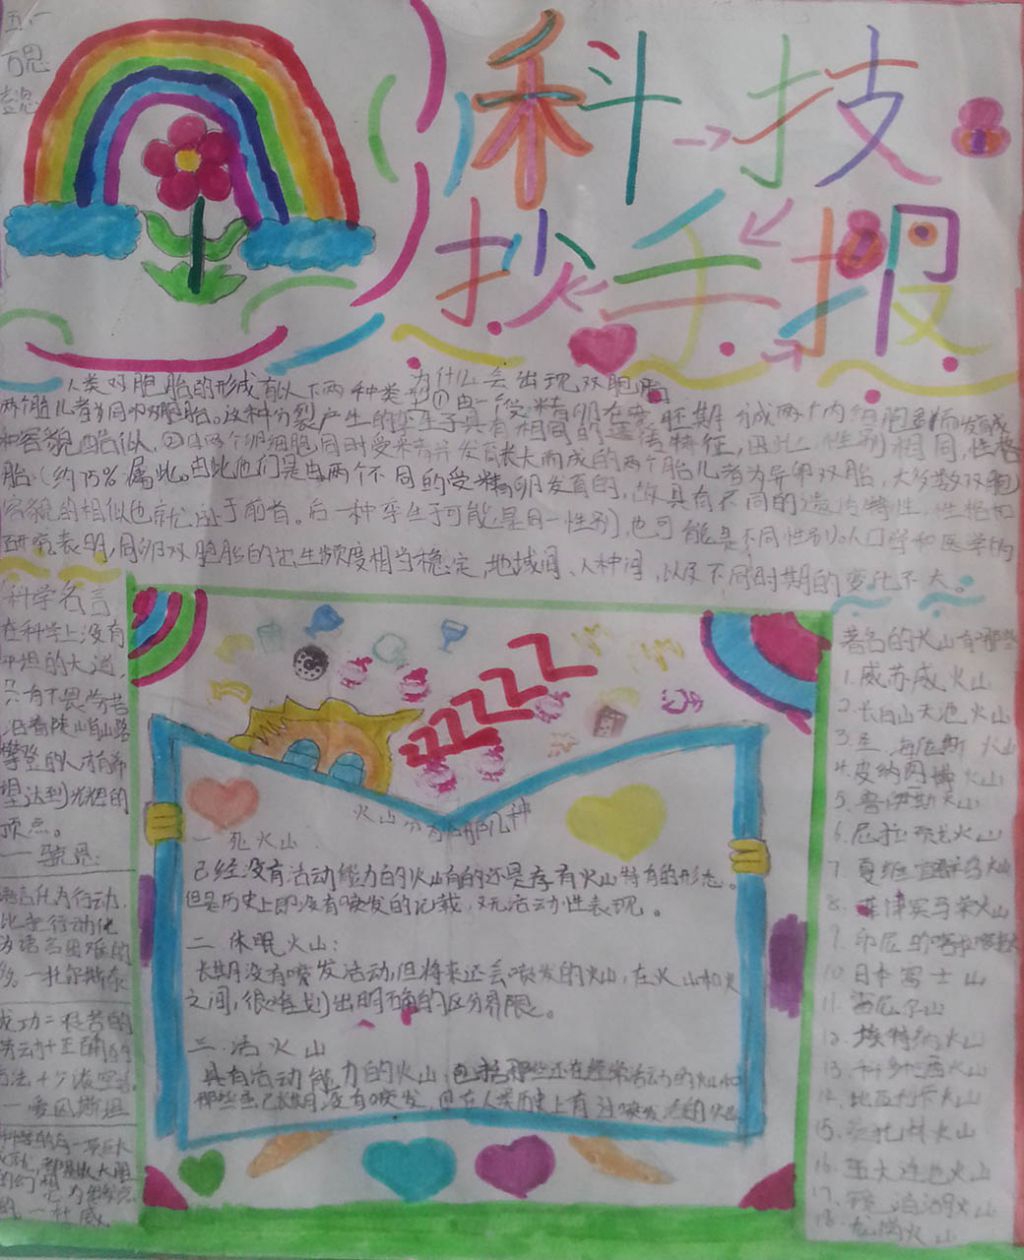 五一
科技
手抄报
为什么会出现双胞胎
人类对胞胎的形成有以下两种类型①由一受精卵在
两个胎儿者为同卵双胞胎。这种分裂产生的孪生子具有相同的遗传特征,因此,性别相同,性格
和容貌酷似,②由两个卵细胞同时受精并发育长大而成的两个胎儿者为异卵双胎,大多数双胞
胎(约75%属此。由此他们是由两个不同的受精卵发育的,故具有不同的遗传特性,性格和
容貌的相似也就逊于前首。后一种孪生子可能是同一性别,也可能是不同性别。人口学和医学的
研究表明,同卵双胞胎的出生频度相当稳定,地域间、人种间,以及不同时期的变化不大。
科学名言
在科学上没有
平坦的大道,
只有不畏劳苦
沿着陡山肖山路
攀登的人才有希
望达到光辉的
顶点。
语言化为行动,
比把行动化
为语言困难的
多。
成功=艰苦的
劳动+正确的
方法+少谈空话。
—爱因斯坦
科学的每一项巨大
成就,都是以大胆
的幻想为
的。—杜威
火山分有哪几种
一 死火山
已经没有活动能力的火山有的还是存有火山特有的形态。
但是历史上即没有喷发的记载,又无活动性表现。
二 休眠火山:
长期没有喷发活动,但将来还会喷发的火山,在火山和火
之间,很难划出明确的区分界限。
三 活火山
具有活动能力的火山,包括那些还在经常活动的火山和
那些虽已长期没有喷发,但在人类历史上有过喷发活动的火山
ZZZZZ
著名的火山有哪些
1.威苏威火山
2.长白山天池火山
3.圣 火山
4.皮纳图博火山
5. 火山
6.尼拉 火山
7.夏维 火山
8. 火山
9.印尼
10 日本富士山
11.
12.埃特纳火山
13. 火山
14. 火山
15. 火山
16.五大连池火山
17.镜泊湖火山
18.龙岗火山